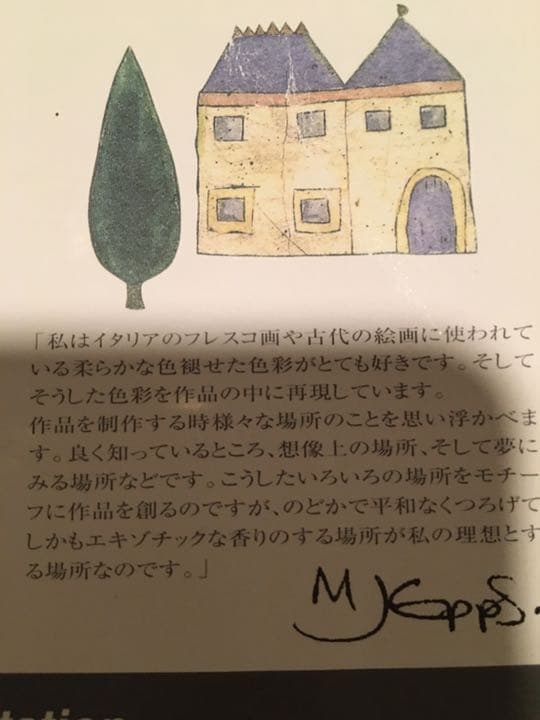 「私はイタリアのフレスコ画や古代の絵画に使われて
いる柔らかな色褪せた色彩がとても好きです。そして
そうした色彩を作品の中に再現しています。
作品を制作する時様々な場所のことを思い浮かべま
す。良く知っているところ、想像上の場所、そして夢に
みる場所などです。こうしたいろいろの場所をモチー
フに作品を創るのですが、のどかで平和なくつろげて
しかもエキゾチックな香りのする場所が私の理想とす
る場所なのです。」
M J Epps.